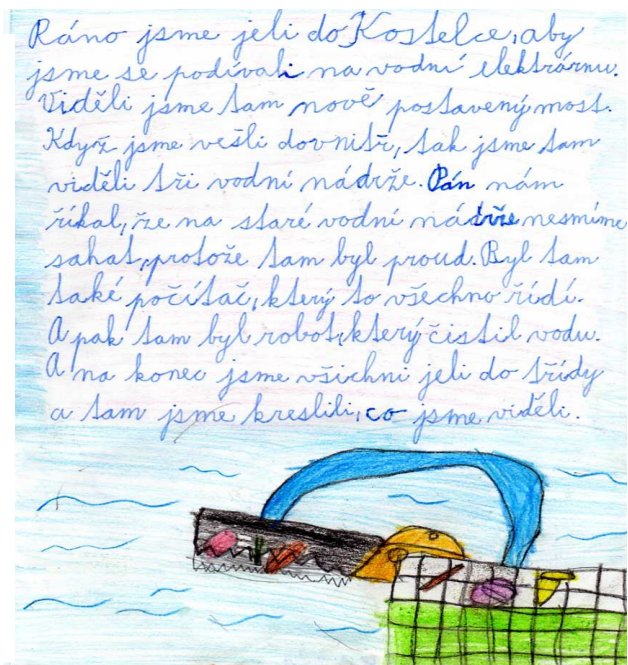 Ráno jsme jeli do Kostelce, aby
jsme se podívali na vodní elektrárnu.
Viděli jsme tam nově postavený most.
Když jsme vešli dovnitř, tak jsme tam
viděli tři vodní nádrže. Pán nám
říkal, že na staré vodní nádrže nesmíme
sahat, protože tam byl proud. Byl tam
také počítač, který to všechno řídí.
A pak tam byl robot, který čistil vodu.
A na konec jsme všichni jeli do třídy
a tam jsme kreslili, co jsme viděli.